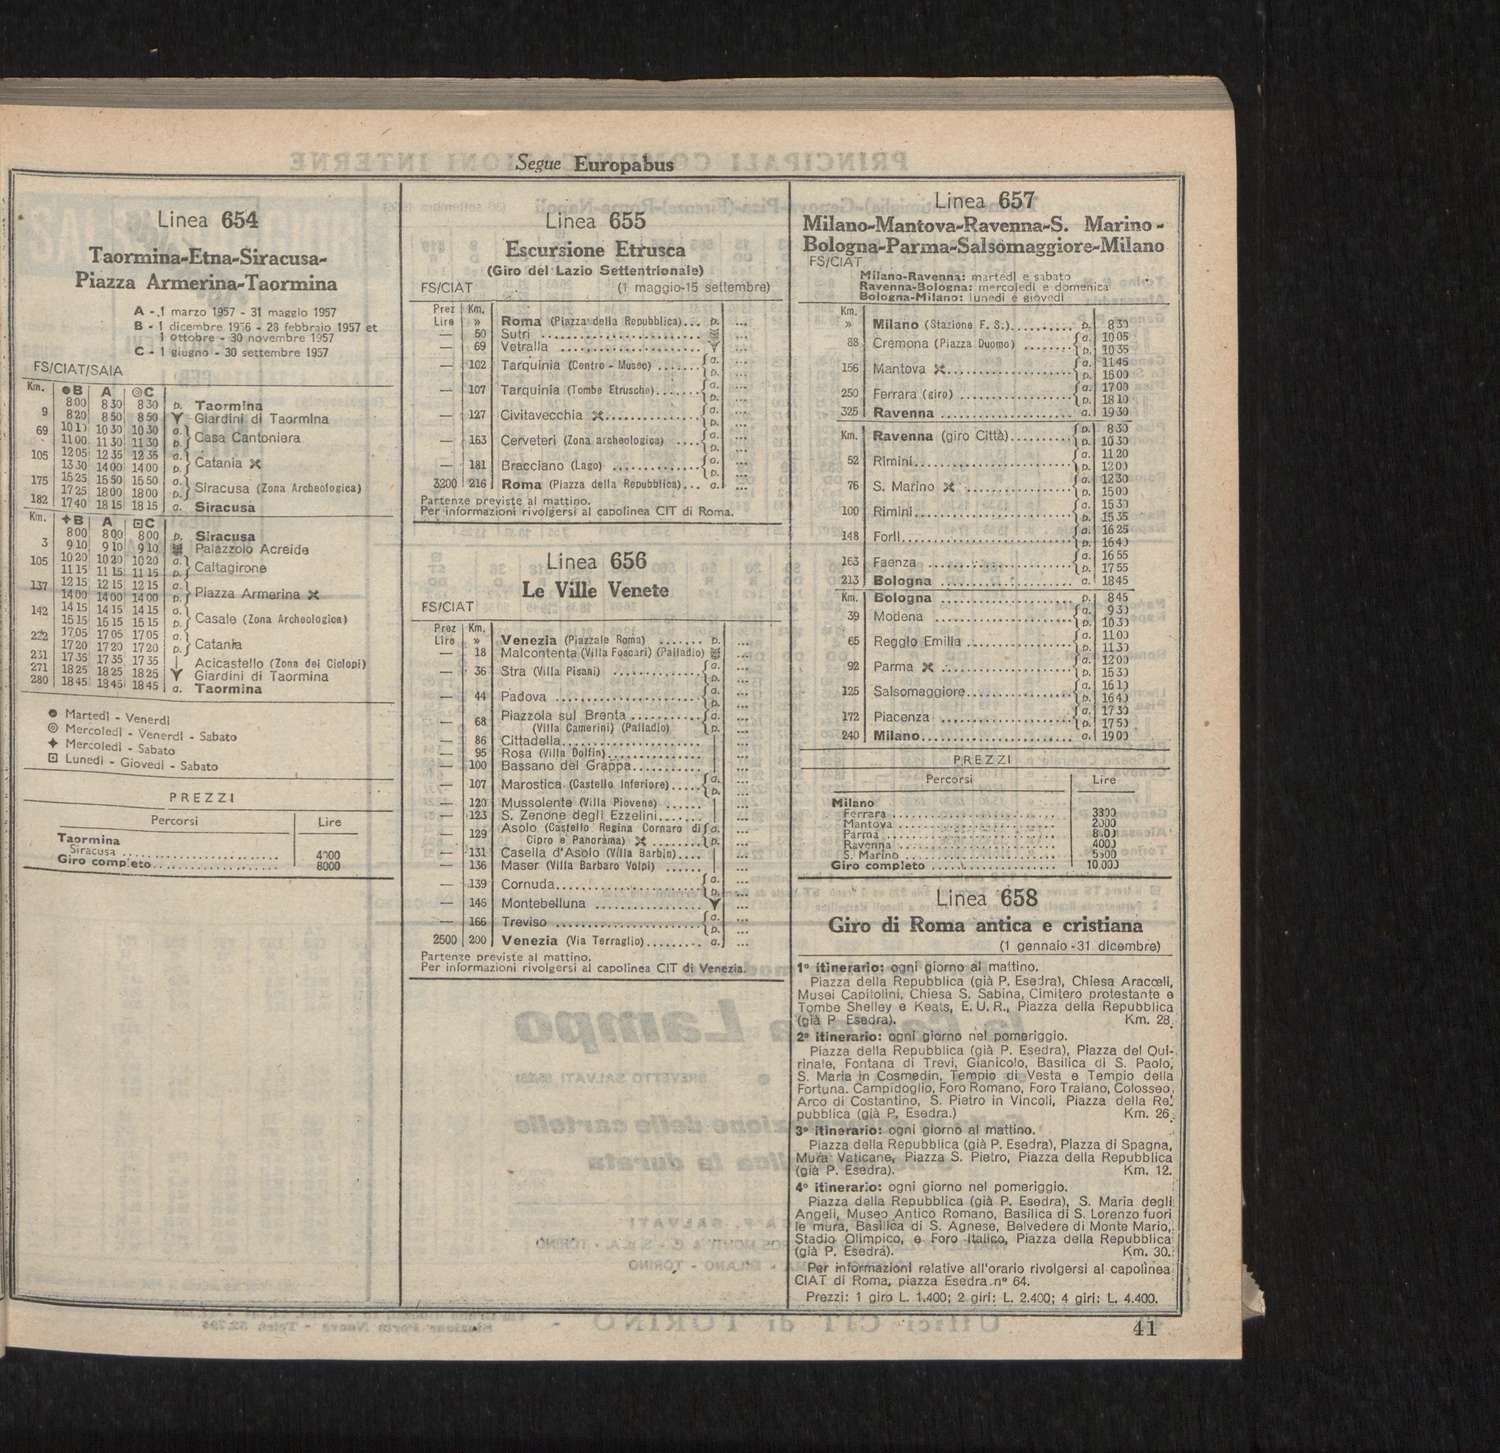 Segue Europabus
Linea 654
Taormina-Etna-Siracusa-
Piazza Armerina-Taormina
A - 1 marzo 1957 - 31 maggio 1957
B - 1 dicembre 1956 - 28 febbraio 1957 et
1 ottobre - 30 novembre 1957
C - 1 giugno - 30 settembre 1957
FS/CIAT/SAIA
Km. B A C
8 00 8 30 8 30 p. Taormina
9 8 20 8 50 8 50 Giardini di Taormina
69 10 10 10 30 10 30 a. Casa Cantoniera
11 00 11 30 11 30 p.
105 12 05 12 35 12 35 a. Catania
13 30 14 00 14 00 p.
175 15 25 15 50 15 50 a. Siracusa (Zona Archeologica)
17 25 18 00 18 00 p.
182 17 40 18 15 18 15 a. Siracusa
Km. B A C
8 00 8 00 8 00 p. Siracusa
3 9 10 9 10 9 10 Palazzolo Acreide
105 10 20 10 20 10 20 a. Caltagirone
11 15 11 15 11 15 p.
137 12 15 12 15 12 15 a. Piazza Armerina
14 00 14 00 14 00 p.
142 14 15 14 15 14 15 a. Casale (Zona Archeologica)
15 15 15 15 15 15 p.
222 17 05 17 05 17 05 a. Catania
17 20 17 20 17 20 p.
231 17 35 17 35 17 35 Acicastello (Zona dei Ciclopi)
271 18 25 18 25 18 25 Giardini di Taormina
280 18 45 18 45 18 45 a. Taormina
Martedì - Venerdì
Mercoledì - Venerdì - Sabato
Mercoledì - Sabato
Lunedì - Giovedì - Sabato
PREZZI
Percorsi Lire
Taormina
Siracusa 4000
Giro completo 8000
Linea 655
Escursione Etrusca
(Giro del Lazio Settentrionale)
FS/CIAT (1 maggio-15 settembre)
Prez Km.
Lire » Roma (Piazza della Repubblica)... p. ...
— 50 Sutri ...
— 69 Vetralla ...
— 102 Tarquinia (Centro - Museo) a. p. ...
— 107 Tarquinia (Tombe Etrusche) a. p. ...
— 127 Civitavecchia a. p. ...
— 163 Cerveteri (Zona archeologica) a. p. ...
— 181 Bracciano (Lago) a. p. ...
3200 216 Roma (Piazza della Repubblica)... a. ...
Partenze previste al mattino.
Per informazioni rivolgersi al capolinea CIT di Roma.
Linea 656
Le Ville Venete
FS/CIAT
Prez Km.
Lire » Venezia (Piazzale Roma) p. ...
— 18 Malcontenta (Villa Foscari) (Palladio) ...
— 36 Stra (Villa Pisani) a. p. ...
— 44 Padova a. p. ...
— 68 Piazzola sul Brenta a. ...
(Villa Camerini) (Palladio) p. ...
— 86 Cittadella ...
— 95 Rosa (Villa Dolfin) ...
— 100 Bassano del Grappa ...
— 107 Marostica (Castello Inferiore) a. p. ...
— 120 Mussolente (Villa Piovene) ...
— 123 S. Zenone degli Ezzelini ...
— 129 Asolo (Castello Regina Cornaro di a. ...
Cipro e Panorama) p. ...
— 131 Casella d'Asolo (Villa Barbin) ...
— 136 Maser (Villa Barbaro Volpi) ...
— 139 Cornuda a. p. ...
— 146 Montebelluna ...
— 166 Treviso a. p. ...
2500 200 Venezia (Via Terraglio) a. ...
Partenze previste al mattino.
Per informazioni rivolgersi al capolinea CIT di Venezia.
Linea 657
Milano-Mantova-Ravenna-S. Marino-
Bologna-Parma-Salsomaggiore-Milano
FS/CIAT
Milano-Ravenna: martedì e sabato
Ravenna-Bologna: mercoledì e domenica
Bologna-Milano: lunedì e giovedì
Km.
» Milano (Stazione F. S.) p. 8 30
88 Cremona (Piazza Duomo) a. 10 05
p. 10 35
156 Mantova a. 11 45
p. 16 00
250 Ferrara (giro) a. 17 00
p. 18 10
325 Ravenna a. 19 30
Km. Ravenna (giro Città) p. 8 30
p. 10 30
52 Rimini a. 11 20
p. 12 00
76 S. Marino a. 12 30
p. 15 00
100 Rimini a. 15 30
p. 15 35
148 Forlì a. 16 25
p. 16 40
163 Faenza a. 16 55
p. 17 55
213 Bologna a. 18 45
Km. Bologna p. 8 45
39 Modena a. 9 30
p. 10 30
65 Reggio Emilia a. 11 00
p. 11 30
92 Parma a. 12 00
p. 15 30
125 Salsomaggiore a. 16 10
p. 16 40
172 Piacenza a. 17 30
p. 17 50
240 Milano a. 19 00
PREZZI
Percorsi Lire
Milano
Ferrara 3300
Mantova 2000
Parma
Ravenna 4000
S. Marino
Giro completo 10.000
Linea 658
Giro di Roma antica e cristiana
(1 gennaio - 31 dicembre)
1º itinerario: ogni giorno al mattino.
Piazza della Repubblica (già P. Esedra), Chiesa Aracœli,
Musei Capitolini, Chiesa S. Sabina, Cimitero protestante e
Tombe Shelley e Keats, E. U. R., Piazza della Repubblica
(già P. Esedra). Km. 28.
2º itinerario: ogni giorno nel pomeriggio.
Piazza della Repubblica (già P. Esedra), Piazza del Qui-
rinale, Fontana di Trevi, Gianicolo, Basilica di S. Paolo,
S. Maria in Cosmedin, Tempio di Vesta e Tempio della
Fortuna. Campidoglio, Foro Romano, Foro Traiano, Colosseo,
Arco di Costantino, S. Pietro in Vincoli, Piazza della Re-
pubblica (già P. Esedra.) Km. 26.
3º itinerario: ogni giorno al mattino.
Piazza della Repubblica (già P. Esedra), Piazza di Spagna,
Mura Vaticane, Piazza S. Pietro, Piazza della Repubblica
(già P. Esedra). Km. 12.
4º itinerario: ogni giorno nel pomeriggio.
Piazza della Repubblica (già P. Esedra), S. Maria degli
Angeli, Museo Antico Romano, Basilica di S. Lorenzo fuori
le mura, Basilica di S. Agnese, Belvedere di Monte Mario,
Stadio Olimpico, e Foro Italico, Piazza della Repubblica
(già P. Esedra). Km. 30.
Per informazioni relative all'orario rivolgersi al capolinea
CIAT di Roma, piazza Esedra nº 64.
Prezzi: 1 giro L. 1.400; 2 giri: L. 2.400; 4 giri: L. 4.400.
41